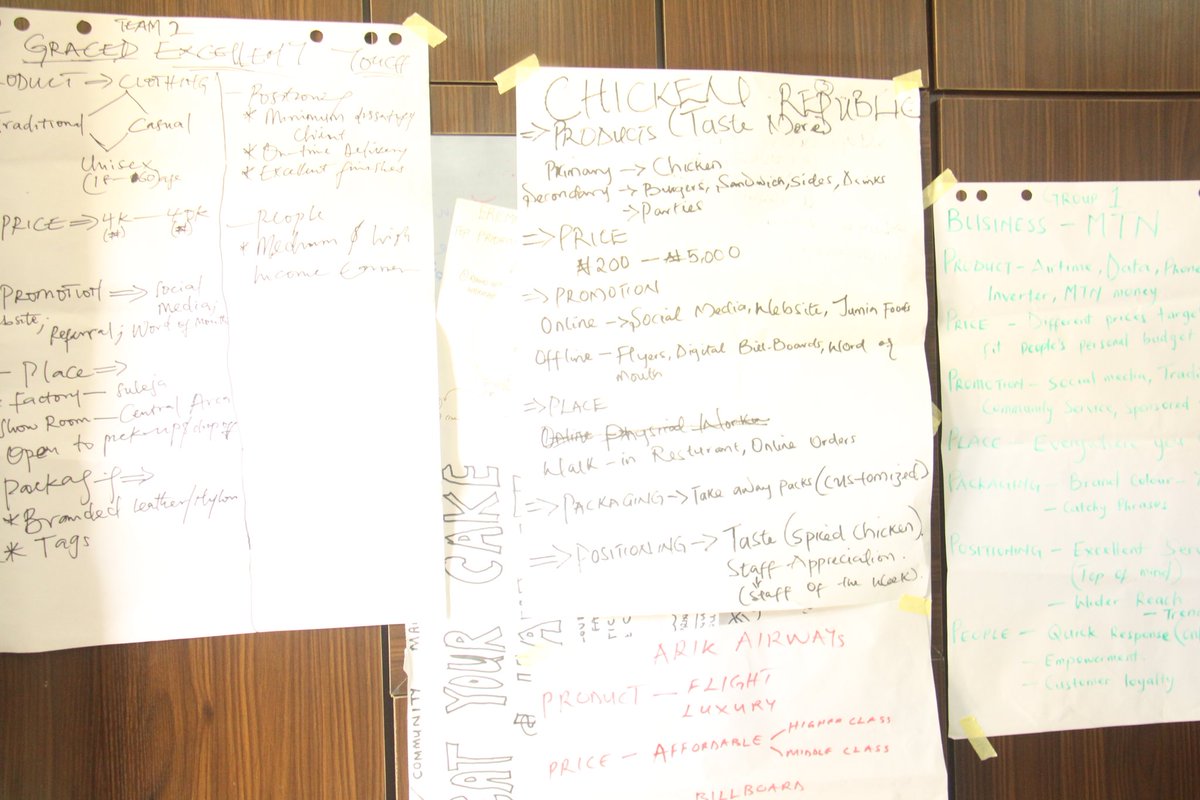 TEAM 2
GRACED EXCELLENT TOUCH
ODUCT → CLOTHING
Traditional Casual
Unisex
(18-60)age
PRICE ⇒ 4K — 45K
(₦) (₦)
PROMOTION ⇒ Social
Media,
bsite, Referral, Word of Mouth
- Place ⇒
Factory - Suleja
Show Room - Central Area
Open to pick-up/dropoff
Packaging ⇒
* Branded Leather/Nylon
* Tags
- Positioning
* Minimum dissatisfy
Client
* On-time Delivery
* Excellent finishes
- People
* Medium & high
Income Earner
CHICKEN REPUBLIC
⇒ PRODUCTS (Taste More)
Primary → Chicken
Secondary → Burgers, Sandwich, Sides, Drinks
→ Parties
⇒ PRICE
₦200 — ₦5,000
⇒ PROMOTION
Online → Social Media, Website, Jumin Foods
Offline - Flyers, Digital Bill-Boards, Word of
Mouth
⇒ PLACE
Online Physical
Walk-in Resturant, Online Orders
⇒ PACKAGING → Take away packs (customized)
⇒ POSITIONING → Taste (Spiced Chicken),
Staff Appreciation.
(Staff of the Week).
EAT YOUR CAKE
COMMUNITY
ARIK AIRWAYS
PRODUCT — FLIGHT
LUXURY
PRICE — AFFORDABLE
HIGHER CLASS
MIDDLE CLASS
BILLBOARD
GROUP 1
BUSINESS - MTN
PRODUCT - Airtime, Data, Phone
Inverter, MTN money
PRICE - Different prices targe
fit people's personal budget
PROMOTION - Social media, Tradi
Community Service, sponsored
PLACE - Everywhere you
PACKAGING - Brand Colour -
- Catchy Phrases
POSITIONING - Excellent Serv
(Top of mind)
- Wider Reach
- Tren
PEOPLE - Quick Response
- Empowerment.
- Customer loyalty